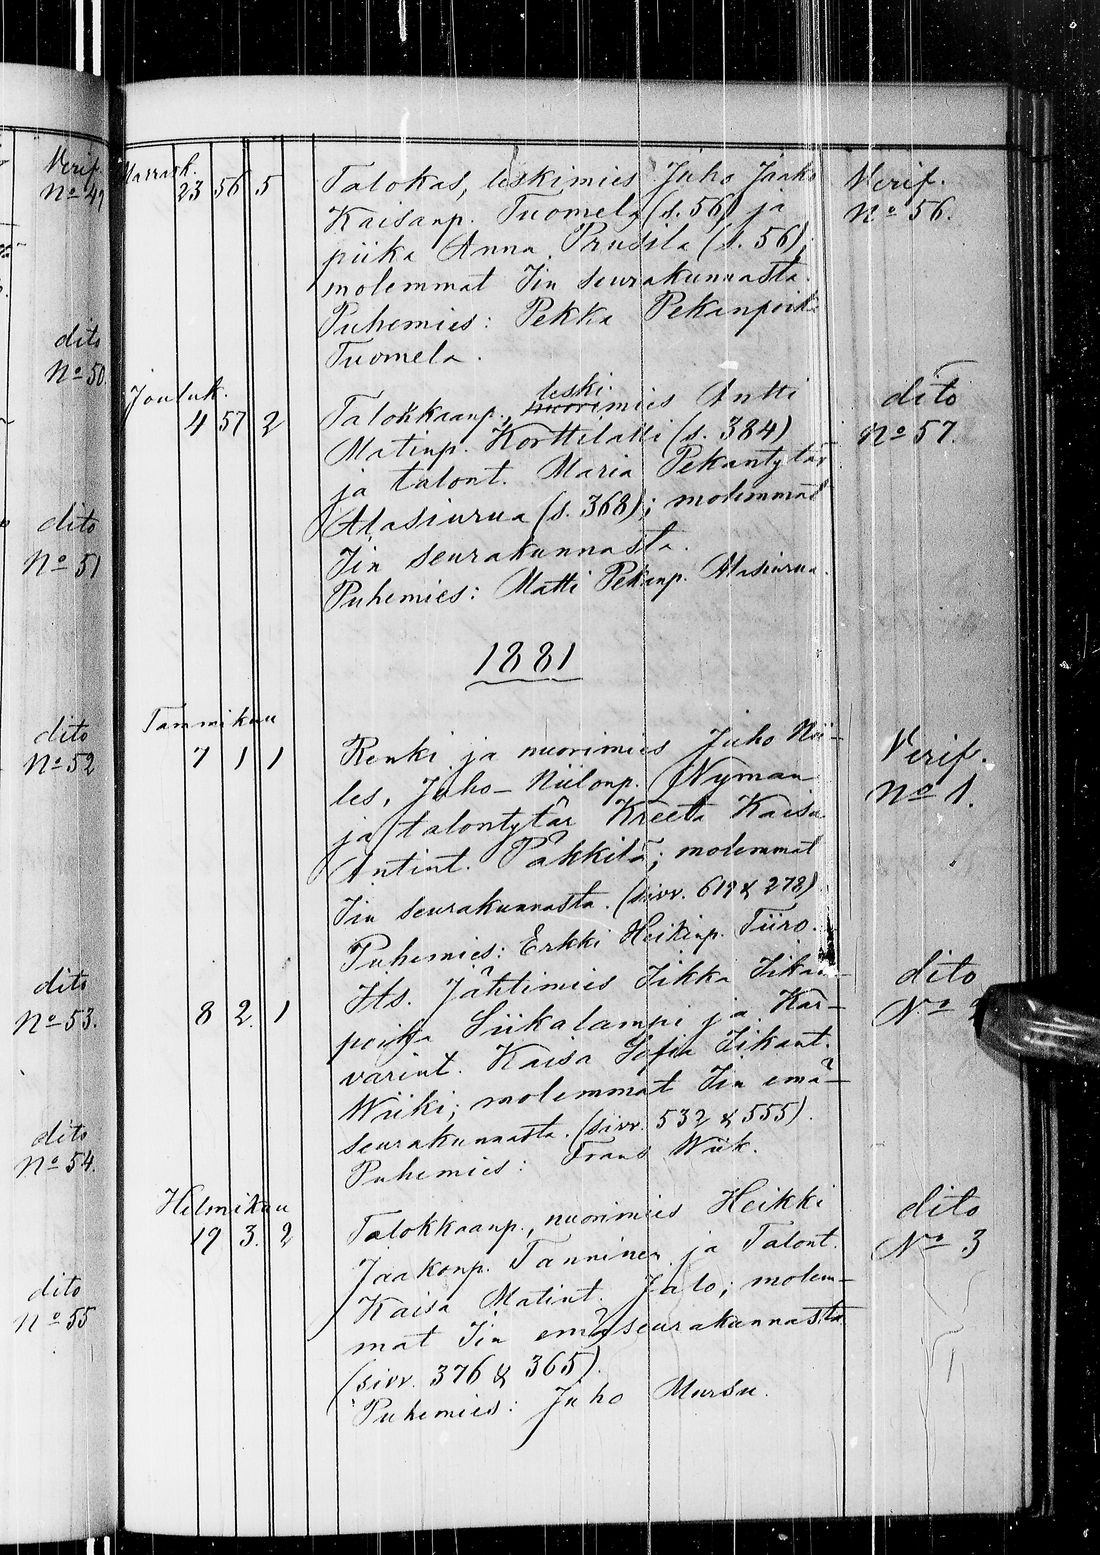 Verif.
No 49
dito
No 50
dito
No 51
dito
No 52
dito
No 53.
dito
No 54.
dito
No 55
Marrask.
23 56 5 Talokas, leskimies Juho Jaako Verif.
Kaisanp. Tuomela (s. 56) ja No 56.
piika Anna Prusila (s. 56);
molemmat Iin seurakunnasta.
Puhemies: Pekka Pekanpoika
Tuomela.
Jouluk.
leski
4 57 2 Talokkaanp., nuorimies Antti dito
Matinp. Korttilalli (s. 384) No 57.
ja talont. Maria Pekantytär
Alasiurua (s. 368); molemmat
Iin seurakunnasta.
Puhemies: Matti Pekanp. Alasiurua.
1881
Tammikuu
7 1 1 Renki ja nuorimies Juho Nii- Verif.
les, Juho-Niilonp. Nyman No 1.
ja talontytär Kreeta Kaisa
Antint. Päkkilä; molemmat
Iin seurakunnasta. (sivv. 619 & 278)
Puhemies: Erkki Heikinp. Tiiro.
8 2. 1 Its. Jähtimies Iikka Iikan- dito
poika Siikalampi ja Kar- No
varint. Kaisa Sofia Iikant.
Wiiki; molemmat Iin emä-
seurakunnasta. (sivv. 532 & 555).
Puhemies: Frans Wiik.
Helmikuu
19 3. 2 Talokkaanp., nuorimies Heikki dito
Jaakonp. Tanninen ja Talont. No 3
Kaisa Matint. Jalo; molem-
mat Iin emäseurakunnasta
(sivv. 376 & 365).
Puhemies: Juho Mursu.